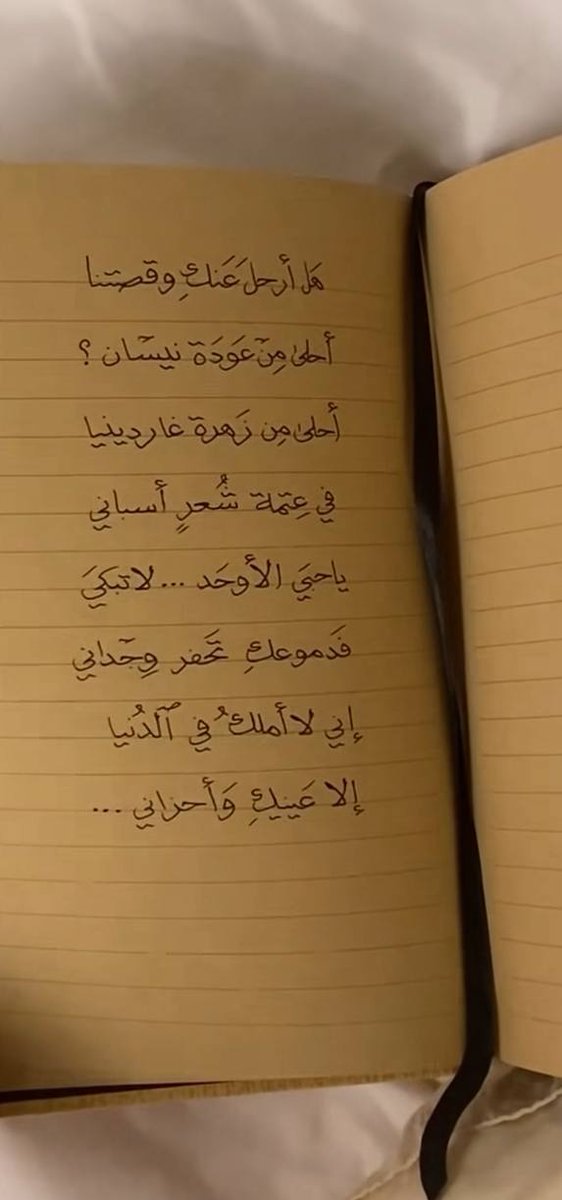 هَل أرحلَ عَنكِ وقصتنا
أحلىٰ مِن عَودَة نيسَان ؟
أحلىٰ مِن زَهرة غاردينيا
في عِتمة شَُعرٍ أسباني
ياحبيَ الأوحَد ... لاتبكيَ
فَدموعكِ تَحفر وِجَداني
إني لاأملكُ في ٱلدُنيا
إلا عَينيكِ وَأحزاني ...